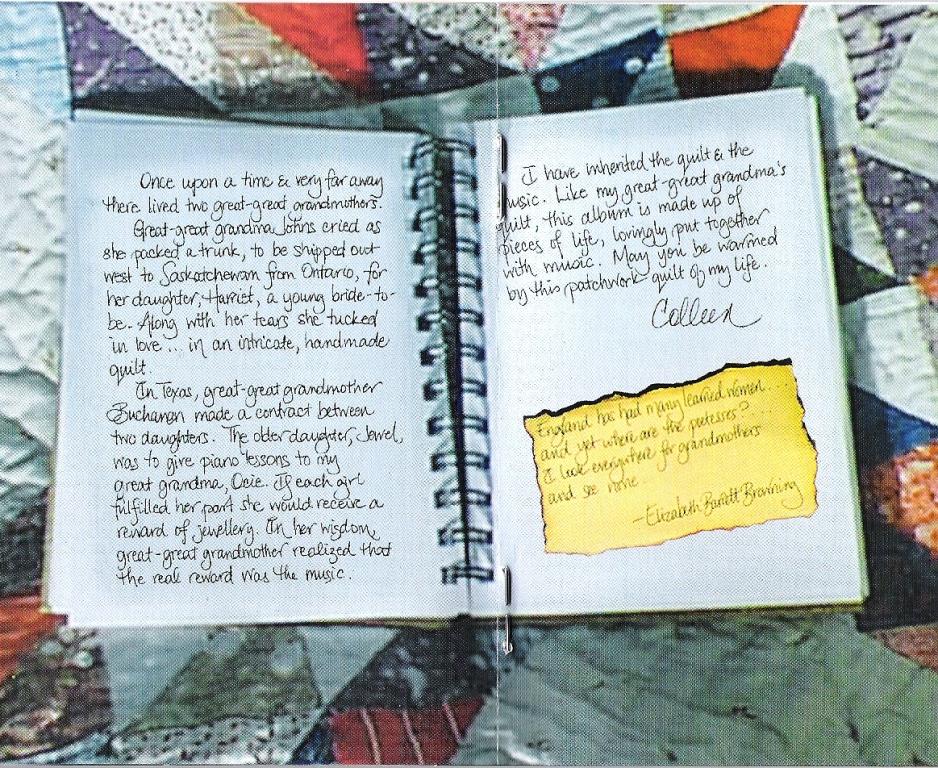 Once upon a time & very far away
there lived two great-great grandmothers.
Great-great grandma Johns cried as
she packed a trunk, to be shipped out
west to Saskatchewan from Ontario, for
her daughter, Harriet, a young bride-to-
be. Along with her tears she tucked
in love... in an intricate, handmade
quilt.
In Texas, great-great grandmother
Buchanan made a contract between
two daughters. The older daughter, Jewel,
was to give piano lessons to my
great grandma, Ocie. If each girl
fulfilled her part she would receive a
reward of jewellery. In her wisdom,
great-great grandmother realized that
the real reward was the music.
I have inherited the quilt & the
music. Like my great-great grandma's
quilt, this album is made up of
pieces of life, lovingly put together
with music. May you be warmed
by this patchwork quilt of my life.
Colleen
England has had many learned women...
and yet where are the poetesses?...
I look everywhere for grandmothers
and see none...
—Elizabeth Barrett Browning